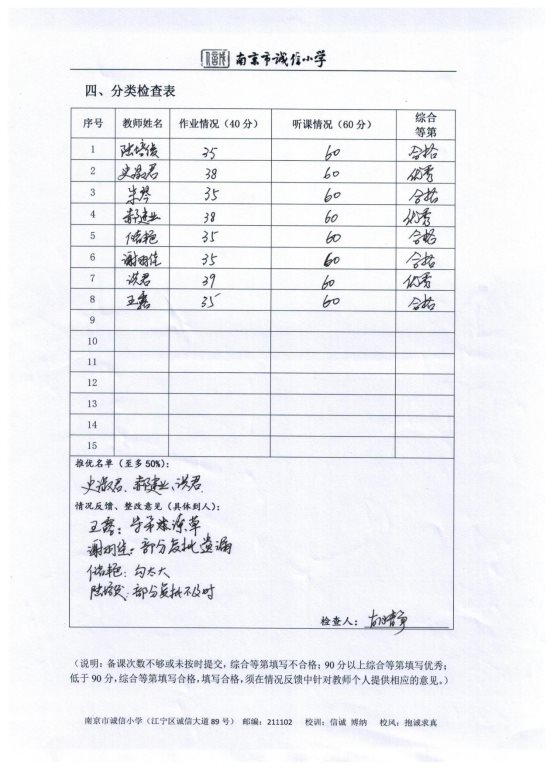 南京市诚信小学
四、分类检查表
序号 教师姓名 作业情况（40 分） 听课情况（60 分） 综合等第
1 陆培俊 35 60 合格
2 史淑君 38 60 优秀
3 朱琴 35 60 合格
4 郝建业 38 60 优秀
5 35 60 合格
6 谢雨佳 35 60 合格
7 洪君 39 60 优秀
8 王露 35 60 合格
9
10
11
12
13
14
15
推优名单（至多 50%）：
史淑君、郝建业、洪君
情况反馈、整改意见（具体到人）：
王露：字迹潦草
谢雨佳：部分复批遗漏
勾太大
部分复批不及时
检查人：
（说明：备课次数不够或未按时提交，综合等第填写不合格；90 分以上综合等第填写优秀；
低于 90 分，综合等第填写合格，填写合格，须在情况反馈中针对教师个人提供相应的意见。）
南京市诚信小学（江宁区诚信大道 89 号） 邮编：211102 校训：信诚 博纳 校风：抱诚求真